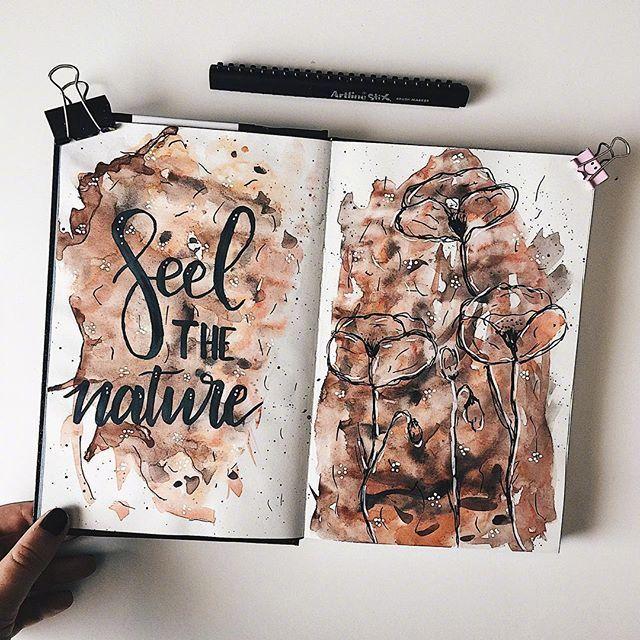 Artline Stix BRUSH MARKER
Seel
THE
nature